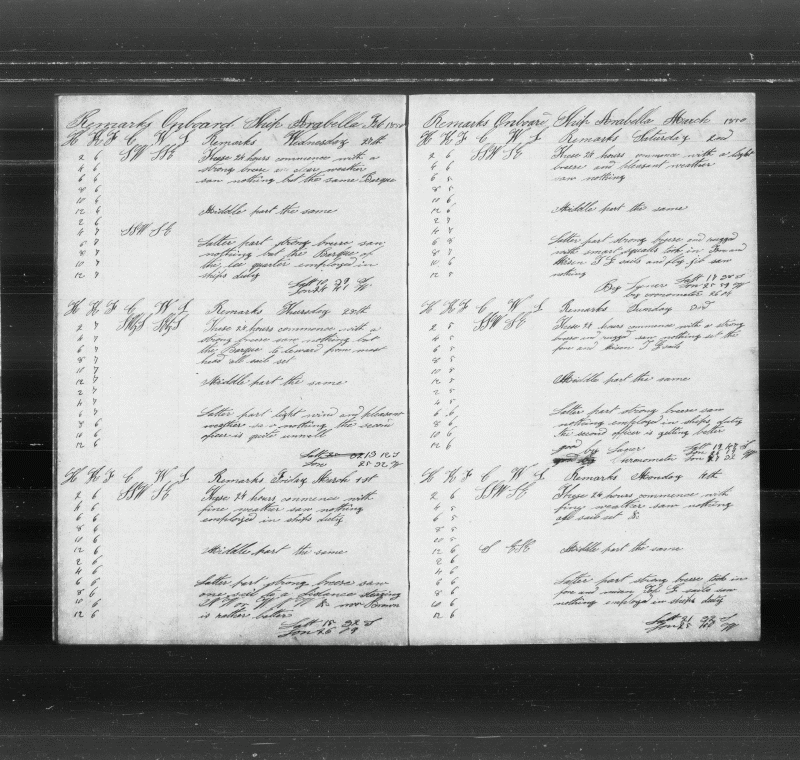 Remarks Onboard Ship Arabella Feb 1850
H K F C W L Remarks Wednesday 27th
2 6 SSW SE These 24 hours commence with a
4 6 strong breese clear weather
6 6 saw nothing but the same Barque
8 6
10 6
12 6 Middle part the same
2 6
4 7 SSW SE
6 7 Latter part strong breese saw
8 7 nothing but the Barque off
10 7 the lee quarter employed in
12 7 ships duty
Latt
Lon W
H K F C W L Remarks Thursday 28th
2 7 These 24 hours commence with a
4 7 strong breese saw nothing but
6 7 the Barque to leward from mast
8 7 head all sail set
10 7
12 7 Middle part the same
2 7
4 7
6 7 Latter part light wind and pleasant
8 6 weather saw nothing the second
10 6 officer is quite unwell
12 6
Latt 13 12 S
Lon 25 32 W
H K F C W L Remarks Friday March 1st
2 6 SSW SE These 24 hours commence with
4 6 fine weather saw nothing
6 6 employed in ships duty
8 6
10 6
12 6 Middle part the same
2 6
4 6
6 6 Latter part strong breese saw
8 6 one sail to a distance steering
10 6 Mr Brown
12 6 is rather better
Latt 15 S
Lon
Remarks Onboard Ship Arabella March 1850
H K F C W L Remarks Saturday 2nd
2 6 SSW SE These 24 hours commence with a light
4 6 breese and pleasant weather
6 6 saw nothing
8 5
10 5
12 6 Middle part the same
2 6
4 7
6 8 Latter part strong breese and rugged
8 7 with smart squalls took in Fore and
10 8 Misen T G sails and flying jib saw
12 7 nothing
By Lunar Latt S
Lon 25 W
by cronometer
H K F C W L Remarks Sunday 3rd
2 5 SSW SE These 24 hours commence with a strong
4 5 breese and rugged saw nothing set the
6 5 fore and misen T G sails
8 5
10 5
12 5 Middle part the same
2 5
4 5
6 6 Latter part strong breese saw
8 6 nothing employed in ships duty
10 6 the second officer is getting better
12 6 good by Luner Latt 19 S
curnometer Lon W
H K F C W L Remarks Monday 4th
2 6 SSW SE These 24 hours commence with
4 5 fine weather saw nothing
6 5 all sail set &c
8 5
10 5
12 6 S ESE Middle part the same
2 6
4 6
6 6 Latter part strong breese took in
8 6 fore and misen T G sails saw
10 6 nothing employed in ships duty
12 6
Latt 21 S
Lon 25 W